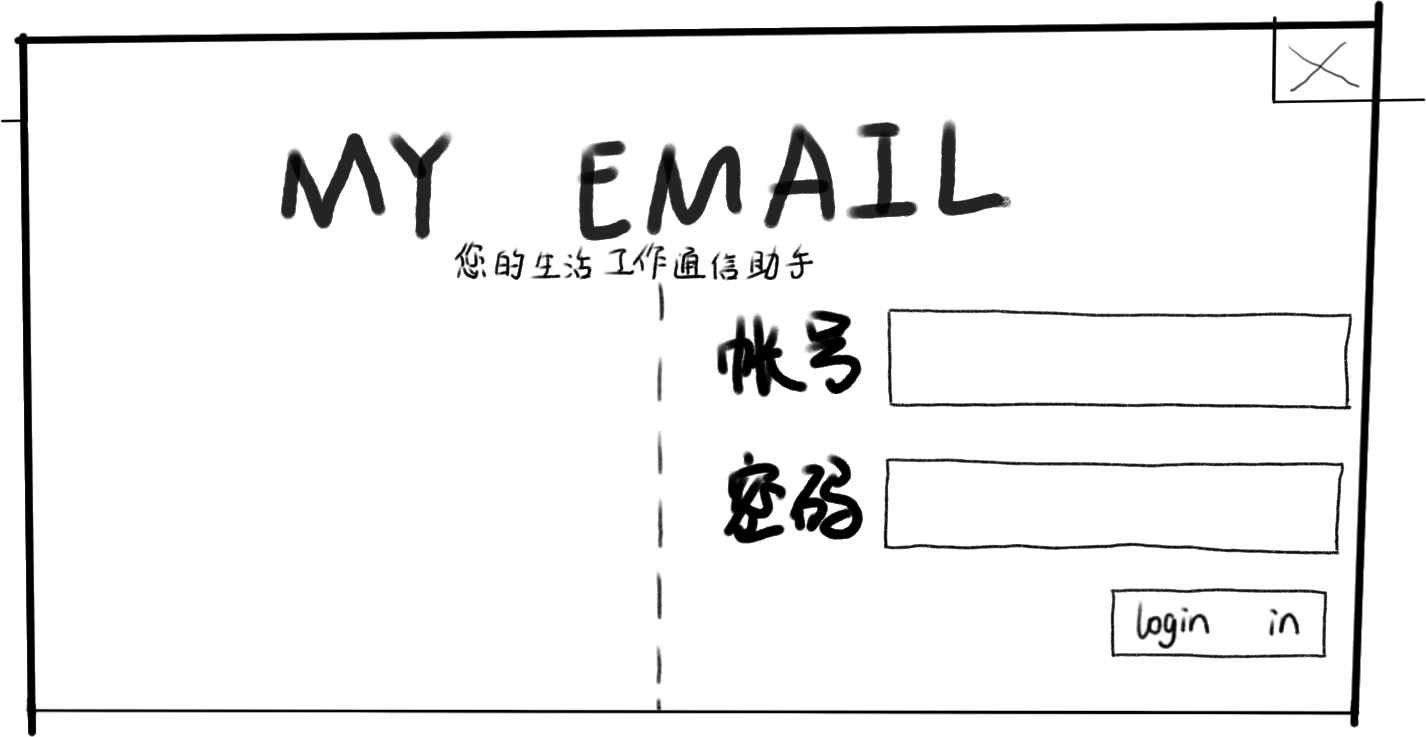 MY EMAIL
您的生活工作通信助手
帐号
密码
login in